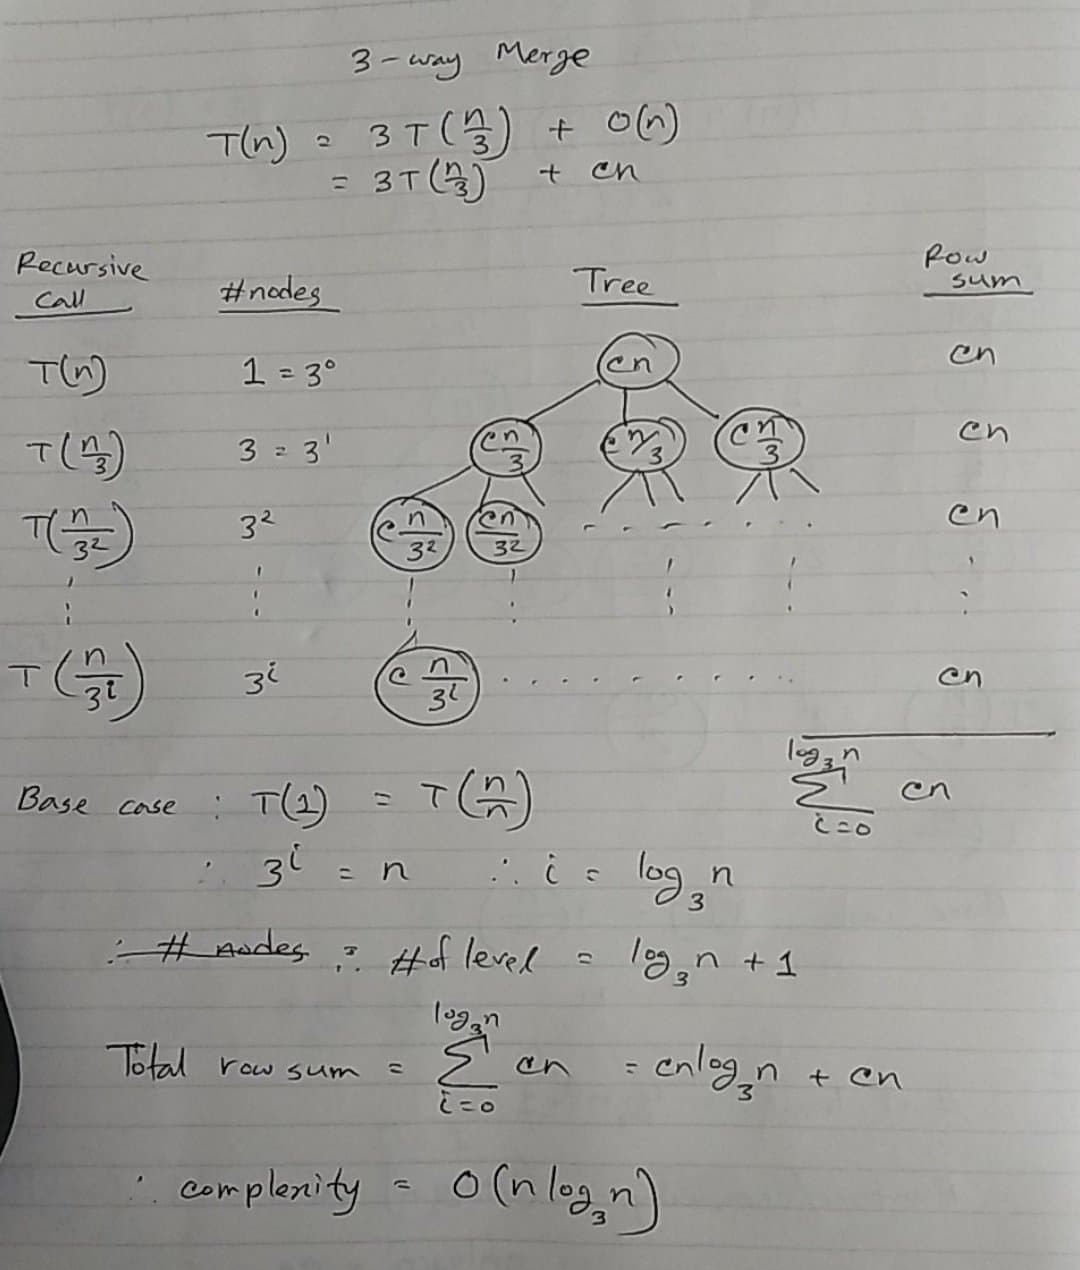 3-way Merge
T(n) = 3T(n/3) + O(n)
= 3T(n/3) + cn
Recursive Call #nodes Tree Row sum
T(n) 1 = 3⁰ cn cn
T(n/3) 3 = 3¹ c n/3 c n/3 c n/3 cn
T(n/3²) 3² c n/3² c n/3² . . . . . . cn
T(n/3ⁱ) 3ⁱ c n/3ⁱ . . . . . . . . . . cn
∑_{i=0}^{log₃n} cn
Base case : T(1) = T(n/n)
∴ 3ⁱ = n ∴ i = log₃n
∴ # nodes ∴ # of level = log₃n + 1
Total row sum = ∑_{i=0}^{log₃n} cn = cnlog₃n + cn
∴ complexity = O(n log₃n)